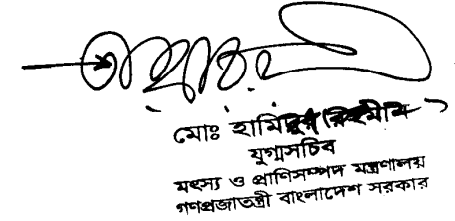 মোঃ হামিদুর রহমান
যুগ্মসচিব
মৎস্য ও প্রাণিসম্পদ মন্ত্রণালয়
গণপ্রজাতন্ত্রী বাংলাদেশ সরকার